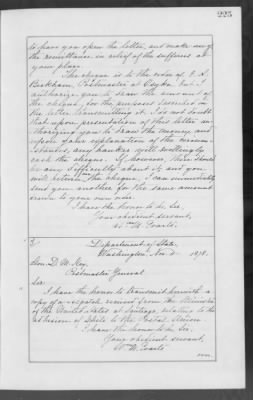 225
to have you open the letter, and make use of
the remittance in relief of the sufferers at
your place.
The cheque is to the order of
Postmaster at but I
authorize you to draw the amount of
the cheque, for the purposes specified in
the letter transmitting it. I do not doubt
that upon presentation of this letter au-
thorizing you to draw the money and
upon explanation of the circum-
stances, any banker will willingly
cash the cheque. If, however, there should
be any difficulty about it and you
will return the cheque, I can immediately
send you another for the same amount
drawn to your own order.
I have the honor to be, Sir,
Your obedient servant,
Wm. M. Evarts.
Department of State,
Washington, Nov. 1878.
Hon. D. M. Key,
Postmaster General
Sir:
I have the honor to transmit herewith a
copy of a despatch received from the Minister
of the United States at Santiago, relating to the
adhesion of Chile to the Postal Union
I have the honor to be, Sir,
Your obedient servant,
Wm. M. Evarts.